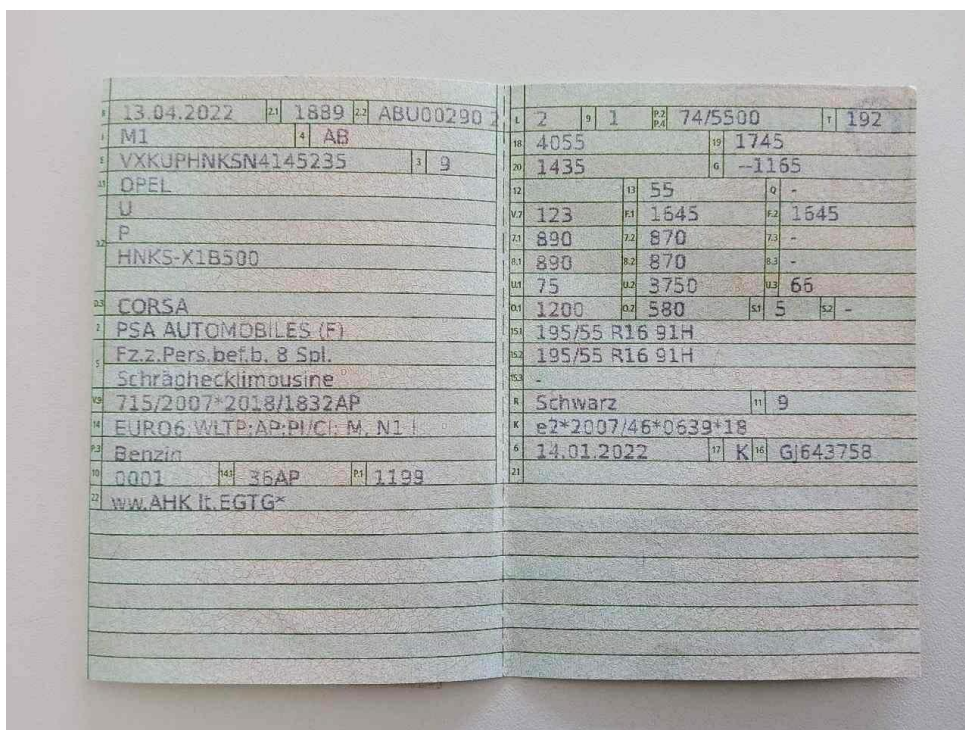 B 13.04.2022 2.1 1889 2.2 ABU00290 2
J M1 4 AB
E VXKUPHNKSN4145235 3 9
D.1 OPEL
U
D.2 P
HNKS-X1B500
D.3 CORSA
2 PSA AUTOMOBILES (F)
5 Fz.z.Pers.bef.b. 8 Spl.
Schräghecklimousine
V.9 715/2007*2018/1832AP
14 EURO6 WLTP;AP;PI/CI; M, N1 I
P.3 Benzin
10 0001 14.1 36AP P.1 1199
22 ww.AHK lt.EGTG*
L 2 9 1 P.2 P.4 74/5500 T 192
18 4055 19 1745
20 1435 G --1165
12 13 55 Q -
V.7 123 F.1 1645 F.2 1645
7.1 890 7.2 870 7.3 -
8.1 890 8.2 870 8.3 -
U.1 75 U.2 3750 U.3 66
O.1 1200 O.2 580 S.1 5 S.2 -
15.1 195/55 R16 91H
15.2 195/55 R16 91H
15.3 -
R Schwarz 11 9
K e2*2007/46*0639*18
6 14.01.2022 17 K 16 GJ643758
21